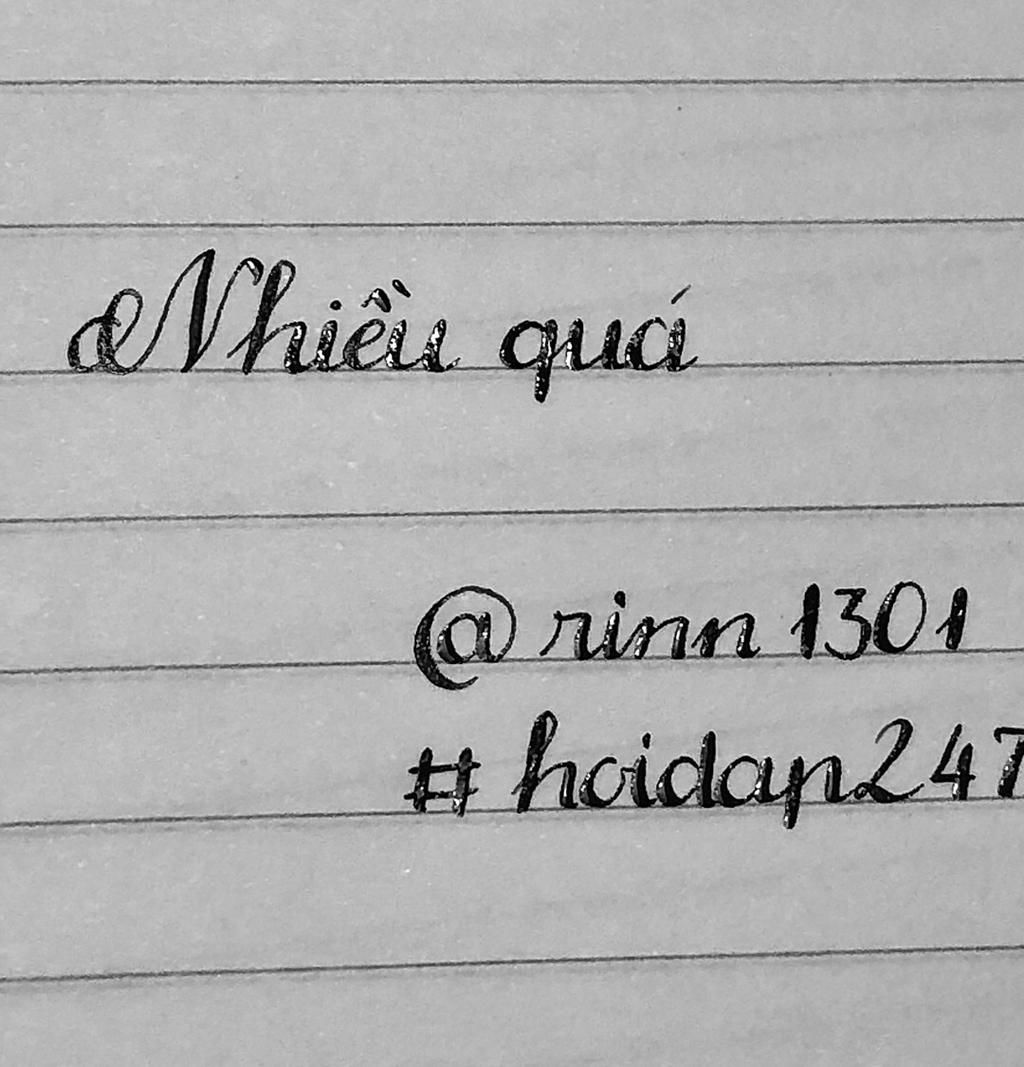 Nhiều quá
@rinn1301
#hoidap247